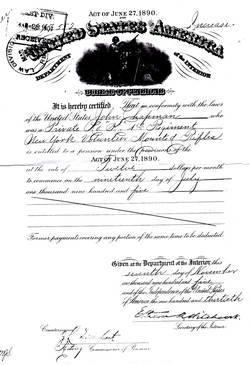 ACT OF JUNE 27, 1890.
Increase.
UNITED STATES OF AMERICA
DEPARTMENT OF THE INTERIOR
BUREAU OF PENSIONS
It is hereby certified That in conformity with the laws
of the United States John Chapman who
was a Private Regiment
New York Volunteer Mounted Rifles
is entitled to a pension under the provisions of the
ACT OF JUNE 27, 1890.
at the rate of Twelve dollars per month
to commence on the nineteenth day of July
one thousand nine hundred and five
Former payments covering any portion of the same time to be deducted.
Given at the Department of the Interior this
seventh day of November
one thousand nine hundred and five
and of the Independence of the United States
of America the one hundred and thirtieth
Secretary of the Interior.
Countersigned
Acting Commissioner of Pensions